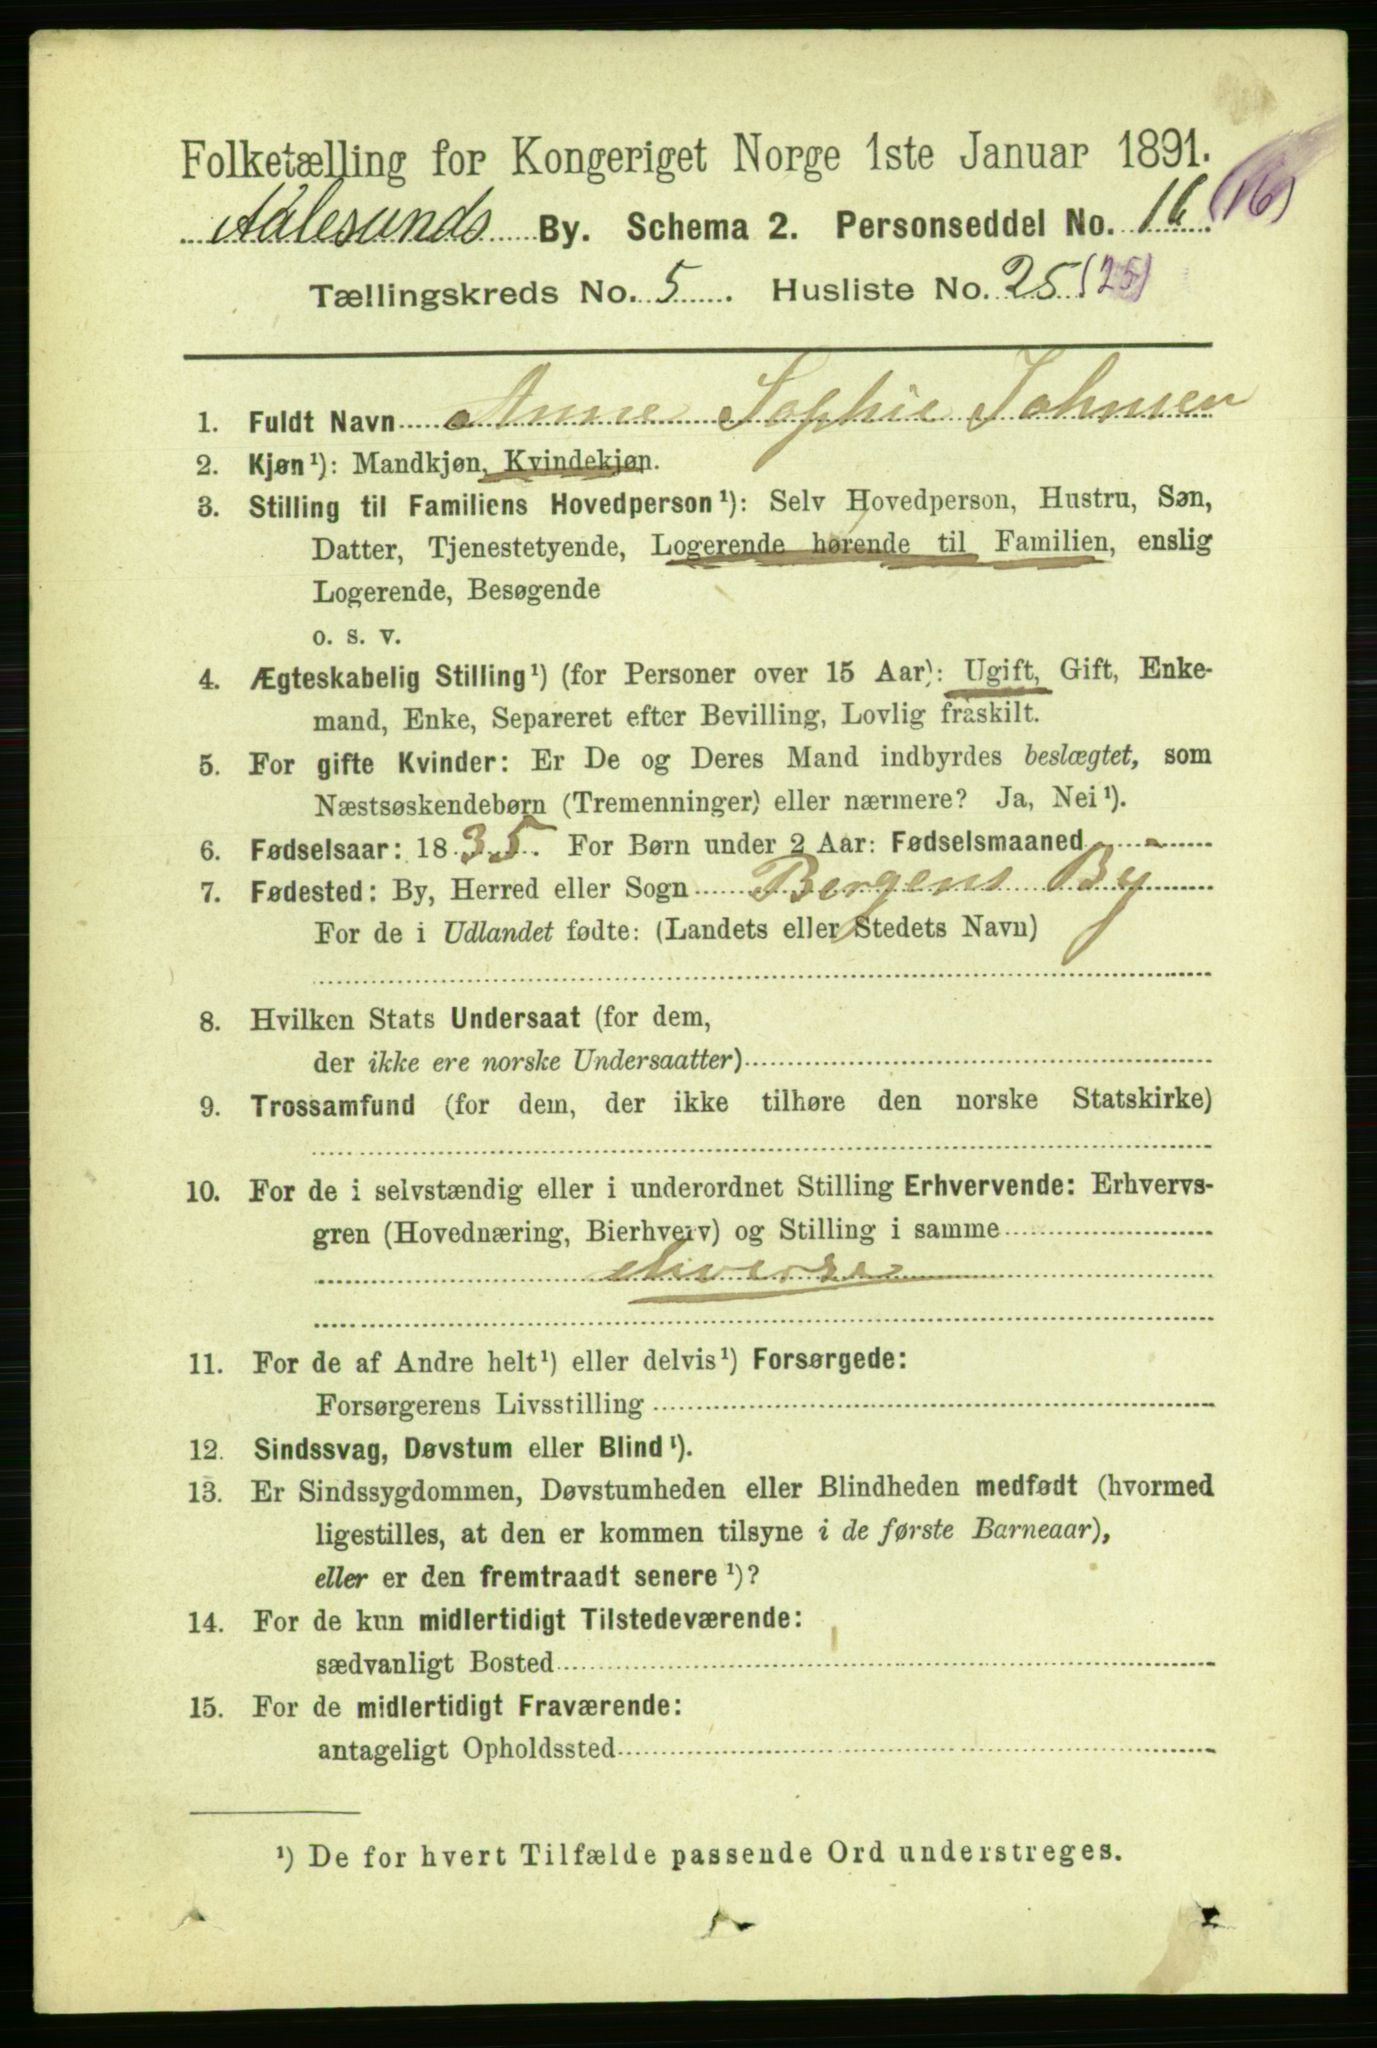 Folketælling for Kongeriget Norge 1ste Januar 1891.
Aalesunds By. Schema 2. Personseddel No. 16 (16)
Tællingskreds No. 5. Husliste No. 25 (25)
1. Fuldt Navn Anne Sophie Johnsen
2. Kjøn¹): Mandkjøn, Kvindekjøn.
3. Stilling til Familiens Hovedperson¹): Selv Hovedperson, Hustru, Søn,
Datter, Tjenestetyende, Logerende hørende til Familien, enslig
Logerende, Besøgende
o. s. v.
4. Ægteskabelig Stilling¹) (for Personer over 15 Aar): Ugift, Gift, Enke-
mand, Enke, Separeret efter Bevilling, Lovlig fraskilt.
5. For gifte Kvinder: Er De og Deres Mand indbyrdes beslægtet, som
Næstsøskendebørn (Tremenninger) eller nærmere? Ja, Nei¹).
6. Fødselsaar: 1835. For Børn under 2 Aar: Fødselsmaaned -
7. Fødested: By, Herred eller Sogn Bergens By
For de i Udlandet fødte: (Landets eller Stedets Navn)
8. Hvilken Stats Undersaat (for dem,
der ikke ere norske Undersaatter)
9. Trossamfund (for dem, der ikke tilhøre den norske Statskirke)
10. For de i selvstændig eller i underordnet Stilling Erhvervende: Erhvervs-
gren (Hovednæring, Bierhverv) og Stilling i samme
11. For de af Andre helt¹) eller delvis¹) Forsørgede:
Forsørgerens Livsstilling
12. Sindssvag, Døvstum eller Blind¹).
13. Er Sindssygdommen, Døvstumheden eller Blindheden medfødt (hvormed
ligestilles, at den er kommen tilsyne i de første Barneaar),
eller er den fremtraadt senere¹)?
14. For de kun midlertidigt Tilstedeværende:
sædvanligt Bosted
15. For de midlertidigt Fraværende:
antageligt Opholdssted
¹) De for hvert Tilfælde passende Ord understreges.